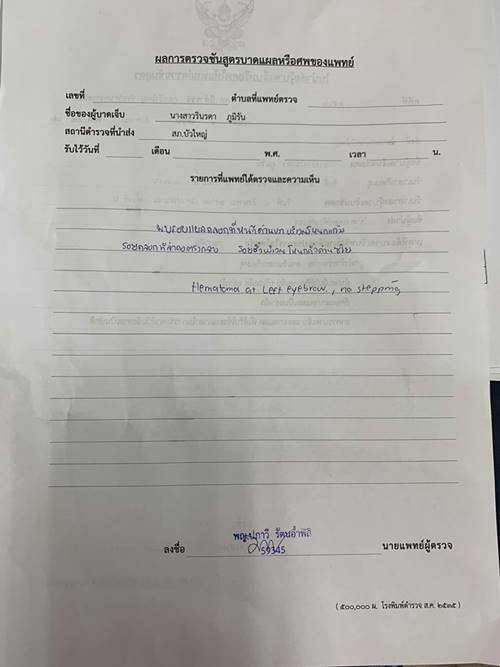 ผลการตรวจชันสูตรบาดแผลหรือศพของแพทย์
เลขที่ ตำบลที่แพทย์ตรวจ
ชื่อของผู้บาดเจ็บ นางสาววรินรดา ภูมิรัน
สถานีตำรวจที่นำส่ง สภ.บัวใหญ่
รับไว้วันที่ เดือน พ.ศ. เวลา น.
รายการที่แพทย์ได้ตรวจและความเห็น
พบรอยแผลถลอกที่หน้าด้านขวา บริเวณโหนกแก้ม
รอยถลอกที่ รอยช้ำบริเวณโหนกคิ้วด้านซ้าย
Hematoma at Left eyebrow, no stepping
ลงชื่อ 59345 นายแพทย์ผู้ตรวจ
( ๕๐๐,๐๐๐ ผ. โรงพิมพ์ตำรวจ ส.ค. ๒๕๓๕ )